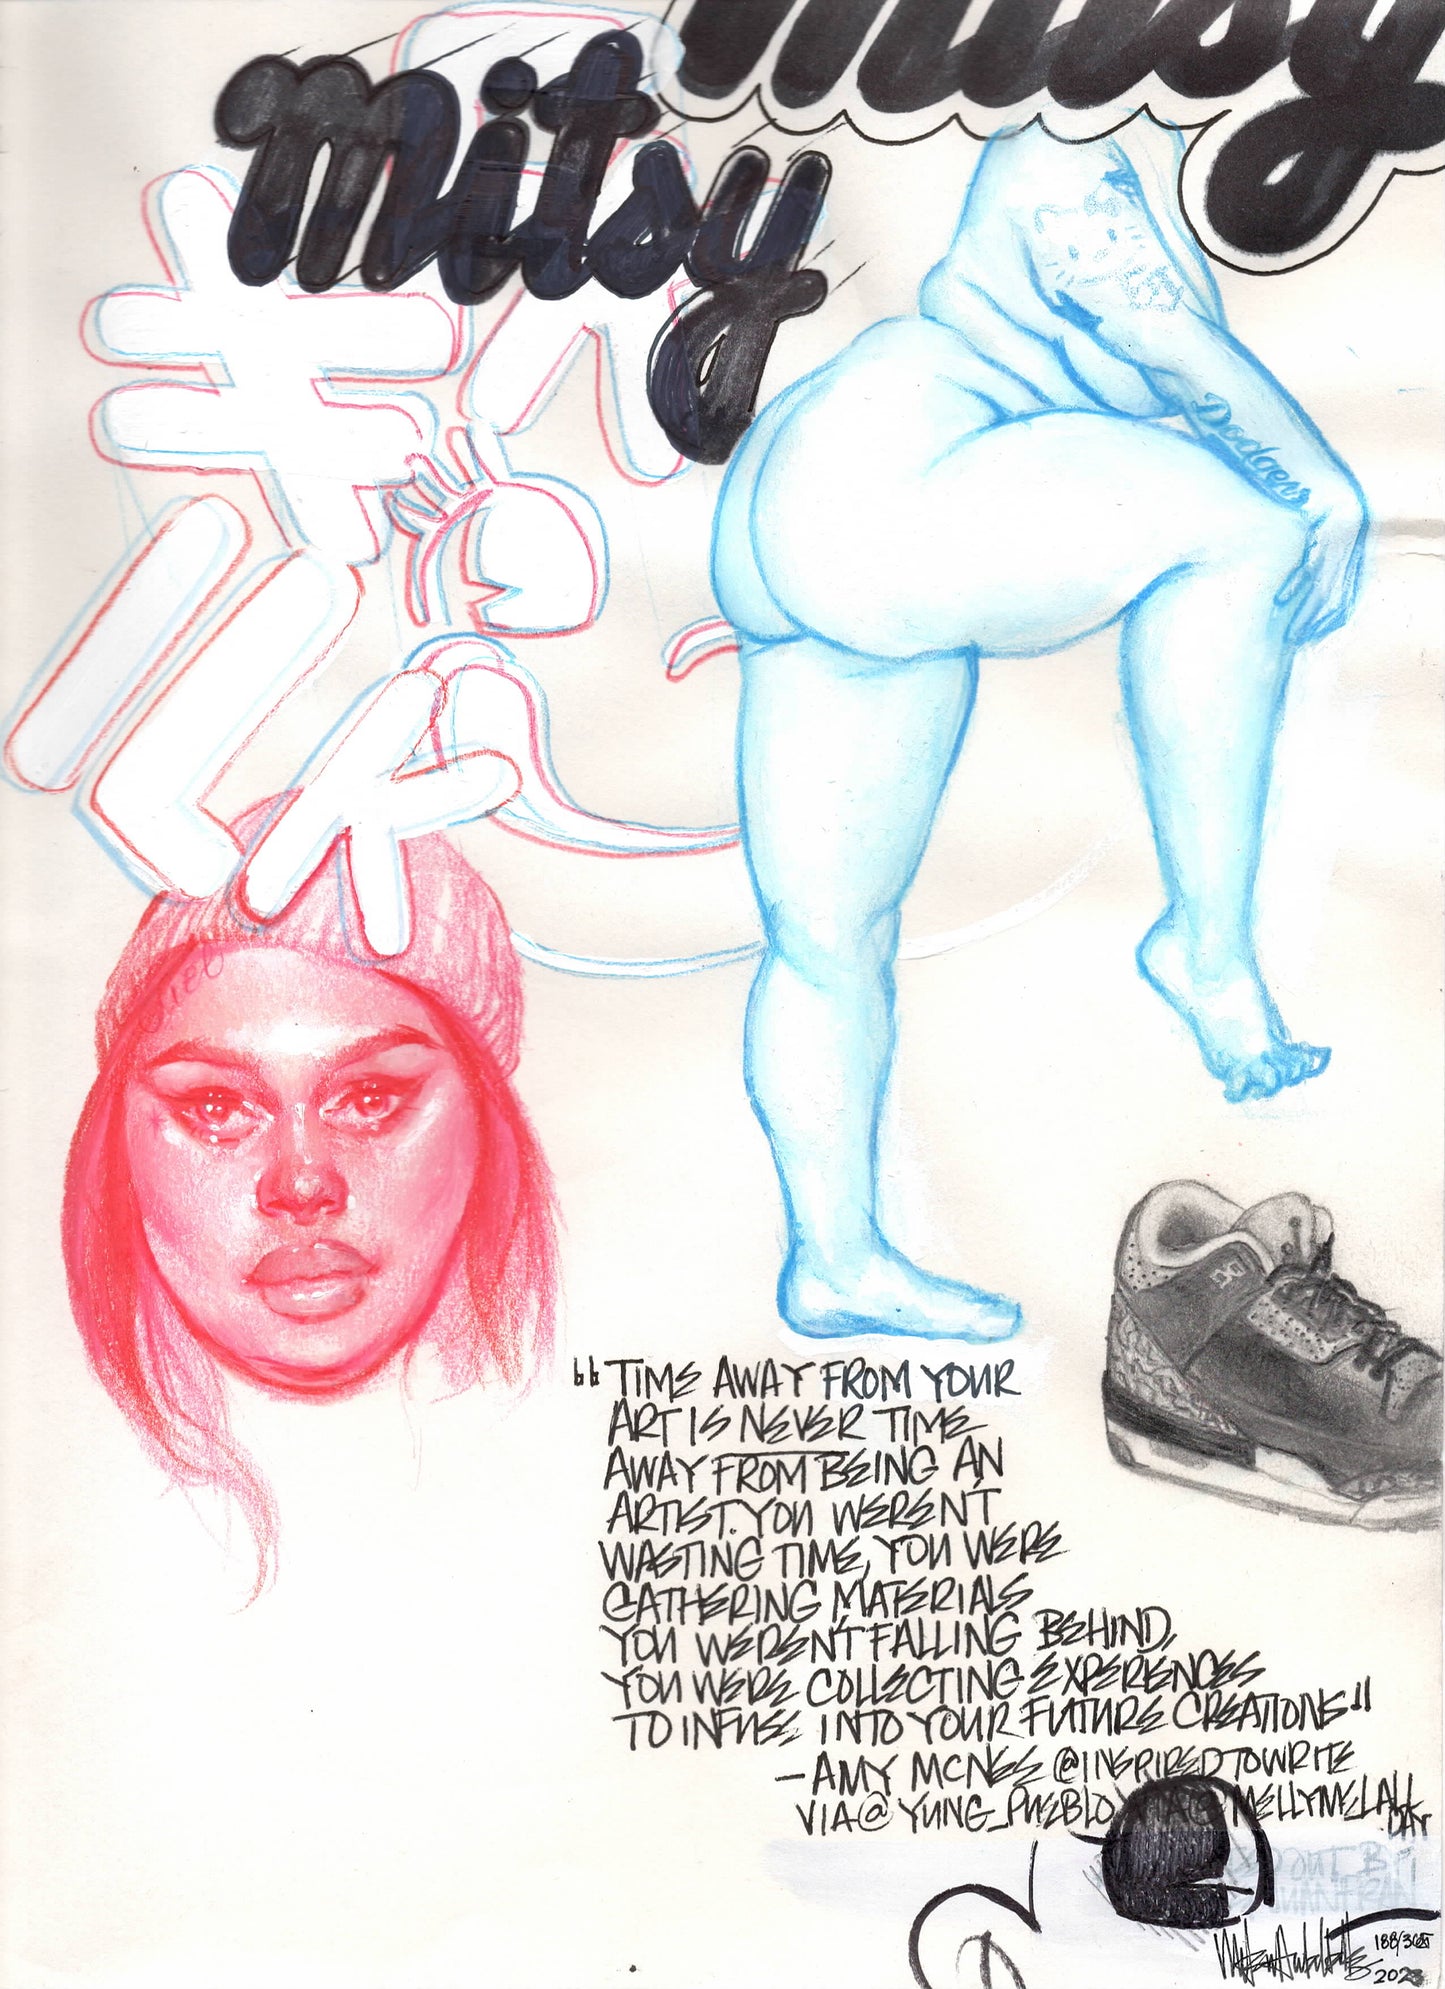 mitsy
mitsy
Dodgers
"TIME AWAY FROM YOUR
ART IS NEVER TIME
AWAY FROM BEING AN
ARTIST. YOU WEREN'T
WASTING TIME, YOU WERE
GATHERING MATERIALS
YOU WEREN'T FALLING BEHIND,
YOU WERE COLLECTING EXPERIENCES
TO INFUSE INTO YOUR FUTURE CREATIONS"
-AMY MCNEE @INSPIREDTOWRITE
VIA@YUNG_PUEBLO VIA@MELLYMELALL
DAY
188/365
2023